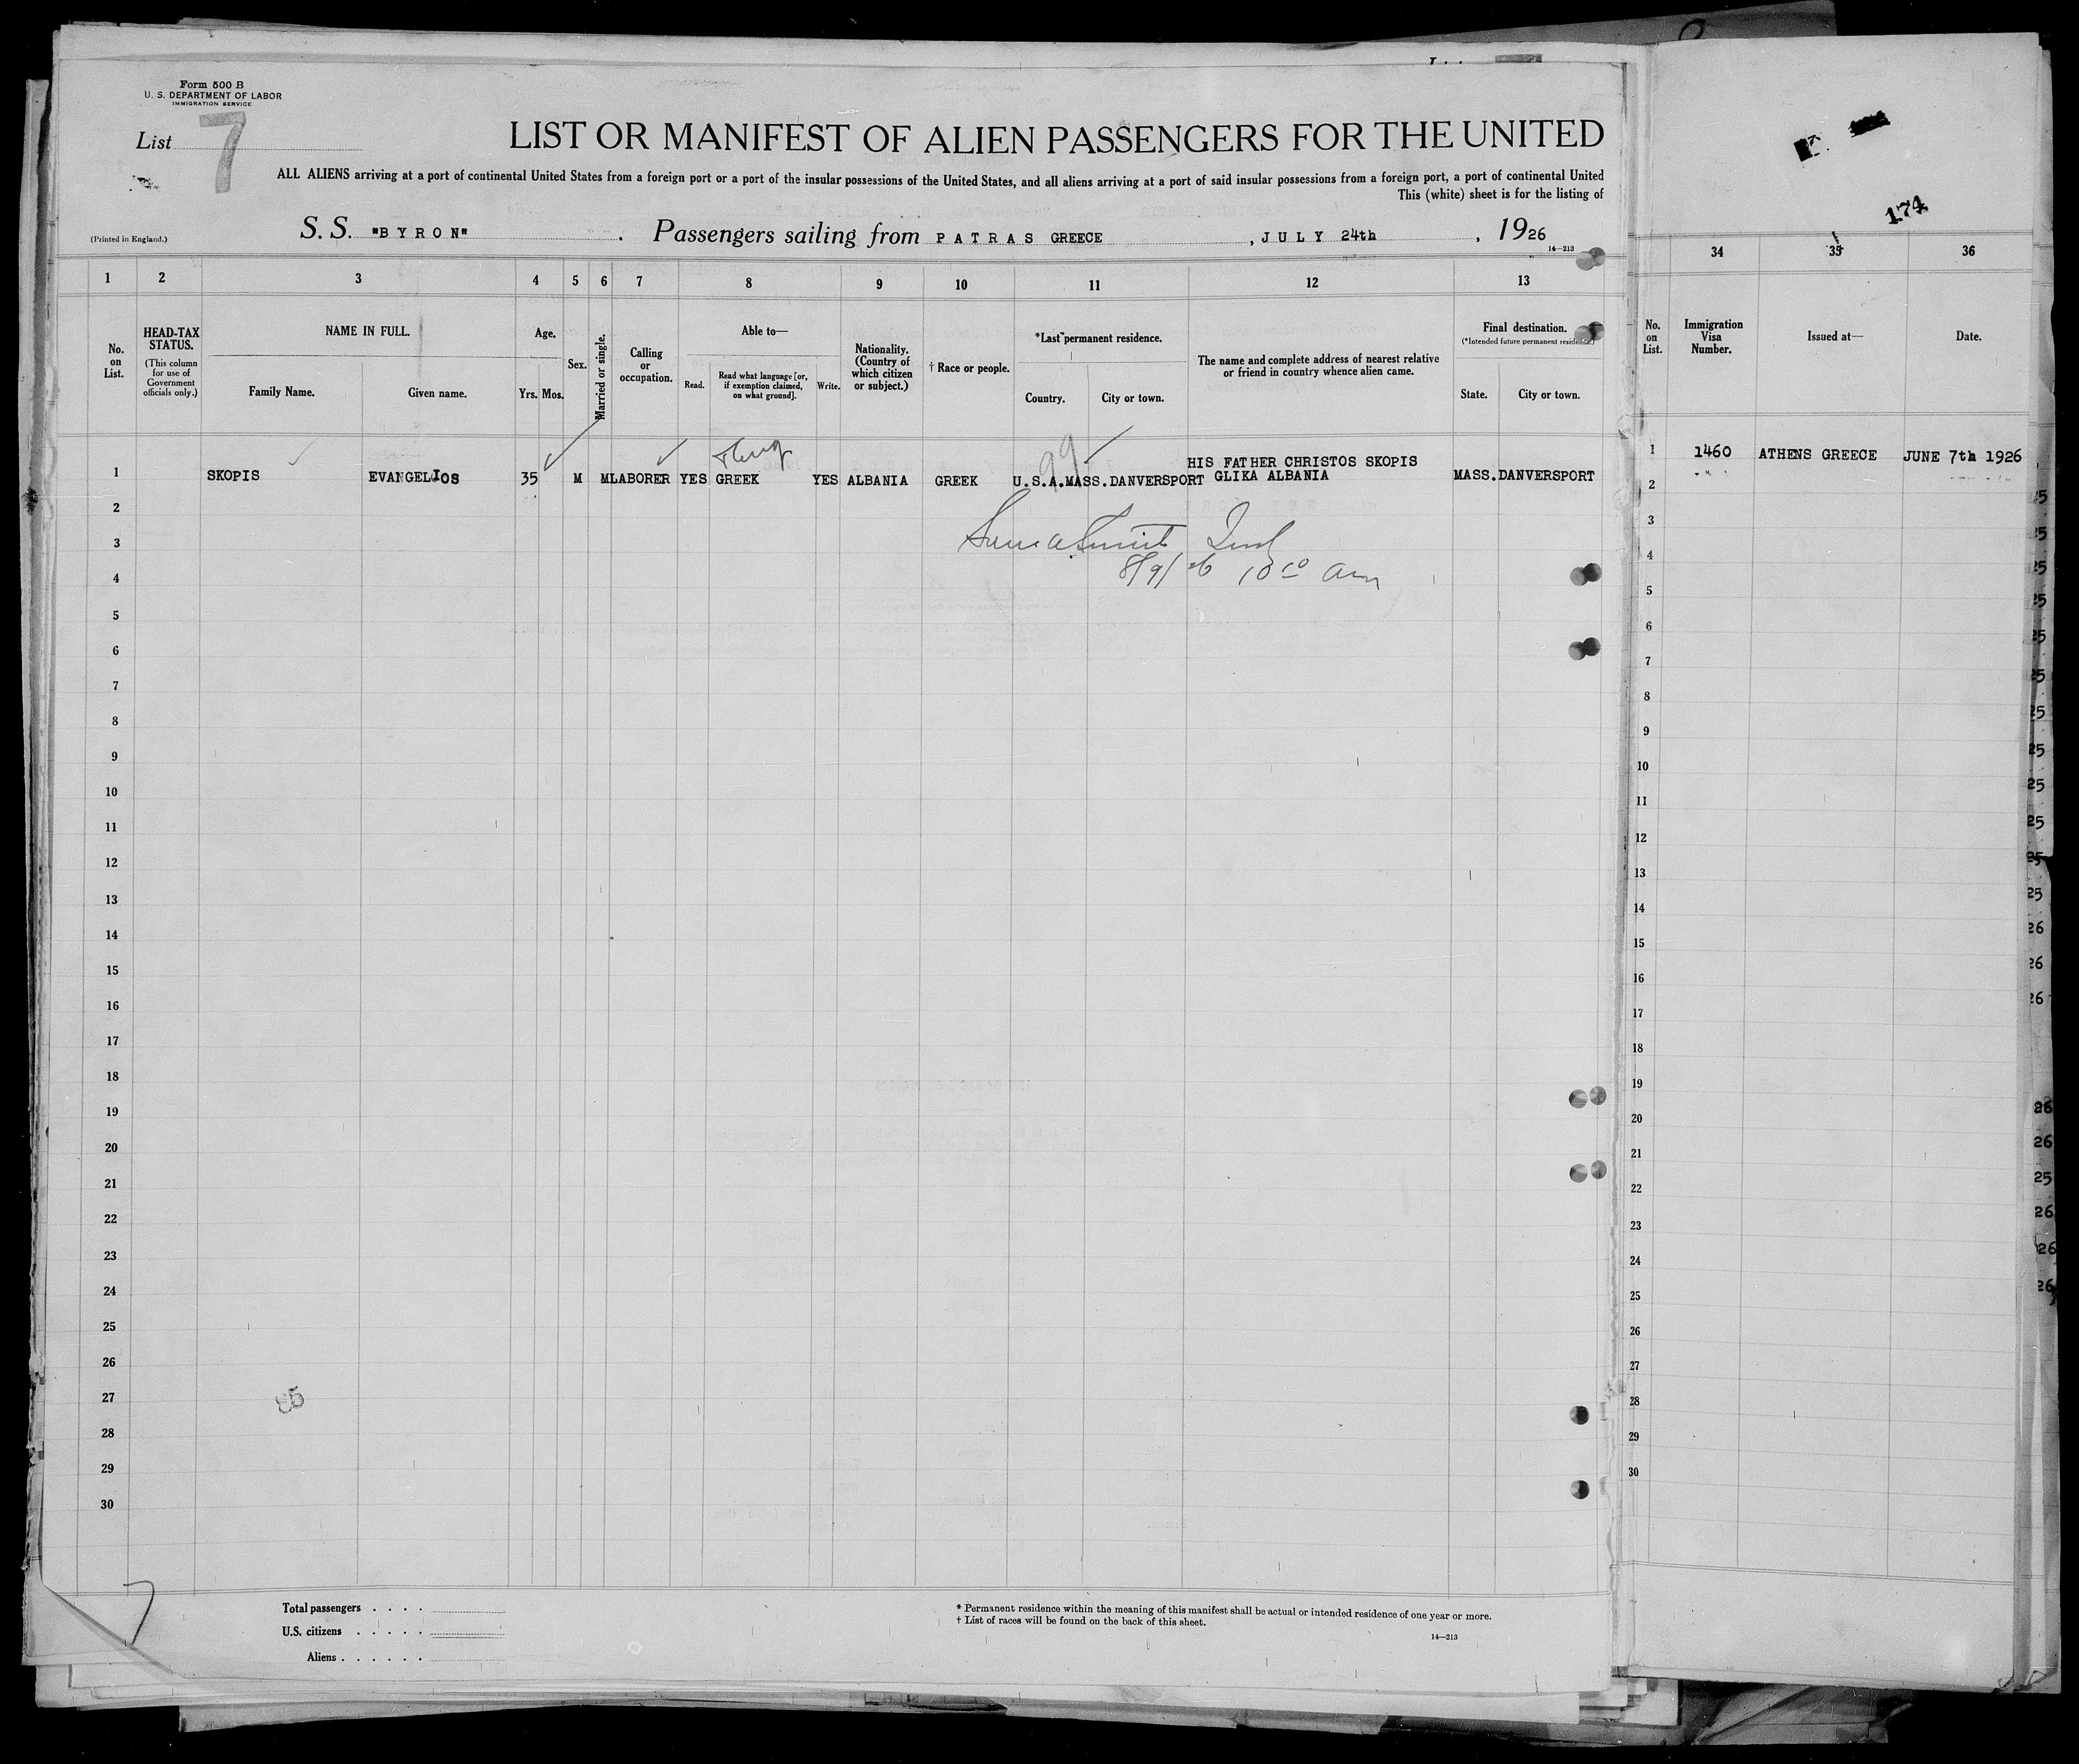 Form 500 B
U. S. DEPARTMENT OF LABOR
IMMIGRATION SERVICE
List 7
LIST OR MANIFEST OF ALIEN PASSENGERS FOR THE UNITED
ALL ALIENS arriving at a port of continental United States from a foreign port or a port of the insular possessions of the United States, and all aliens arriving at a port of said insular possessions from a foreign port, a port of continental United
This (white) sheet is for the listing of
174
(Printed in England.)
S. S. "BYRON" . Passengers sailing from PATRAS GREECE , JULY 24th , 1926
14—213
1 2 3 4 5 6 7 8 9 10 11 12 13
34 35 36
No. on List.
HEAD-TAX STATUS.
(This column for use of Government officials only.)
NAME IN FULL.
Family Name. Given name.
Age.
Yrs. Mos.
Sex.
Married or single.
Calling or occupation.
Able to—
Read. Read what language [or, if exemption claimed, on what ground]. Write.
Nationality. (Country of which citizen or subject.)
† Race or people.
*Last permanent residence.
Country. City or town.
The name and complete address of nearest relative or friend in country whence alien came.
Final destination.
(*Intended future permanent residence.)
State. City or town.
No. on List.
Immigration Visa Number.
Issued at—
Date.
99
HIS FATHER CHRISTOS SKOPIS
1 SKOPIS EVANGELIOS 35 M M LABORER YES GREEK YES ALBANIA GREEK U.S.A. MASS. DANVERSPORT GLIKA ALBANIA MASS. DANVERSPORT
1 1460 ATHENS GREECE JUNE 7th 1926
8/9/26 10 10 am
2
3
4
5
6
7
8
9
10
11
12
13
14
15
16
17
18
19
20
21
22
23
24
25
26
27
28
29
30
2
3
4
5
6
7
8
9
10
11
12
13
14
15
16
17
18
19
20
21
22
23
24
25
26
27
28
29
30
85
7
Total passengers . . . .
U.S. citizens . . . . .
Aliens . . . . . .
* Permanent residence within the meaning of this manifest shall be actual or intended residence of one year or more.
† List of races will be found on the back of this sheet.
14—213